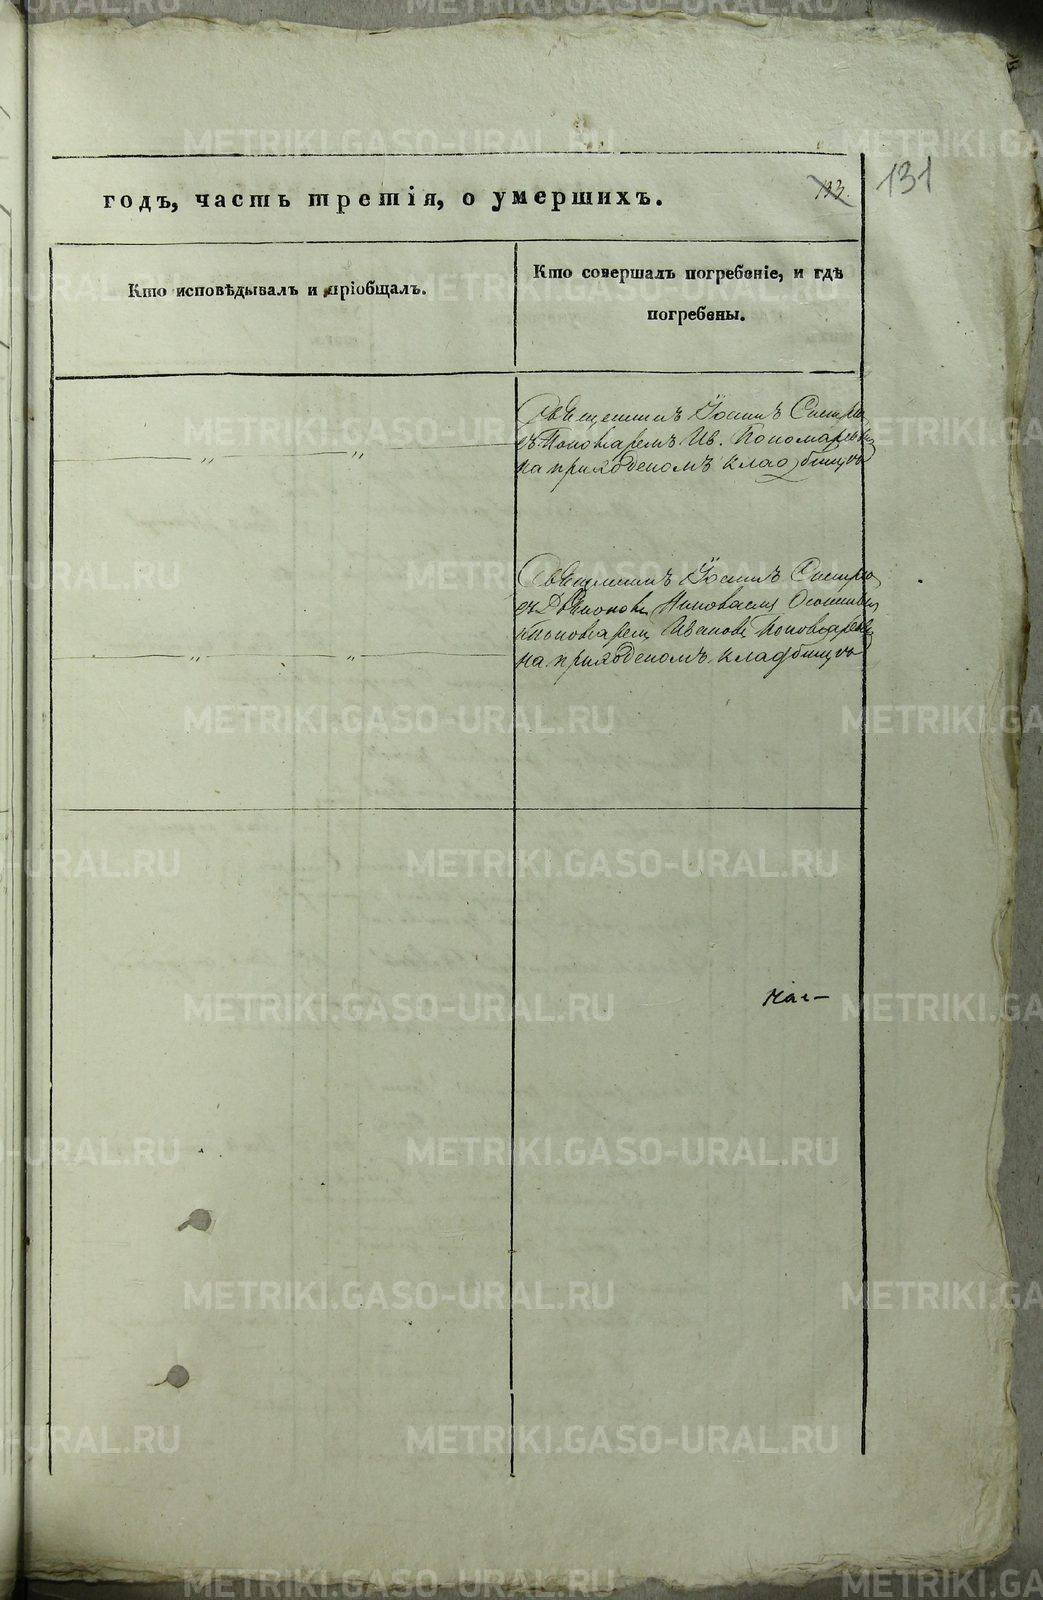 годъ, часть третія, о умершихъ.
133.
131
Кто исповѣдывалъ и пріобщалъ.
Кто совершалъ погребеніе, и гдѣ
погребены.
Священникъ Іоаннъ
съ Пономаремъ Ив. Пономаревымъ
на приходскомъ кладбищѣ
Священникъ Іоаннъ
съ Дьякономъ
и Пономаремъ Иваномъ Пономаревымъ
на приходскомъ кладбищѣ
METRIKI.GASO-URAL.RU